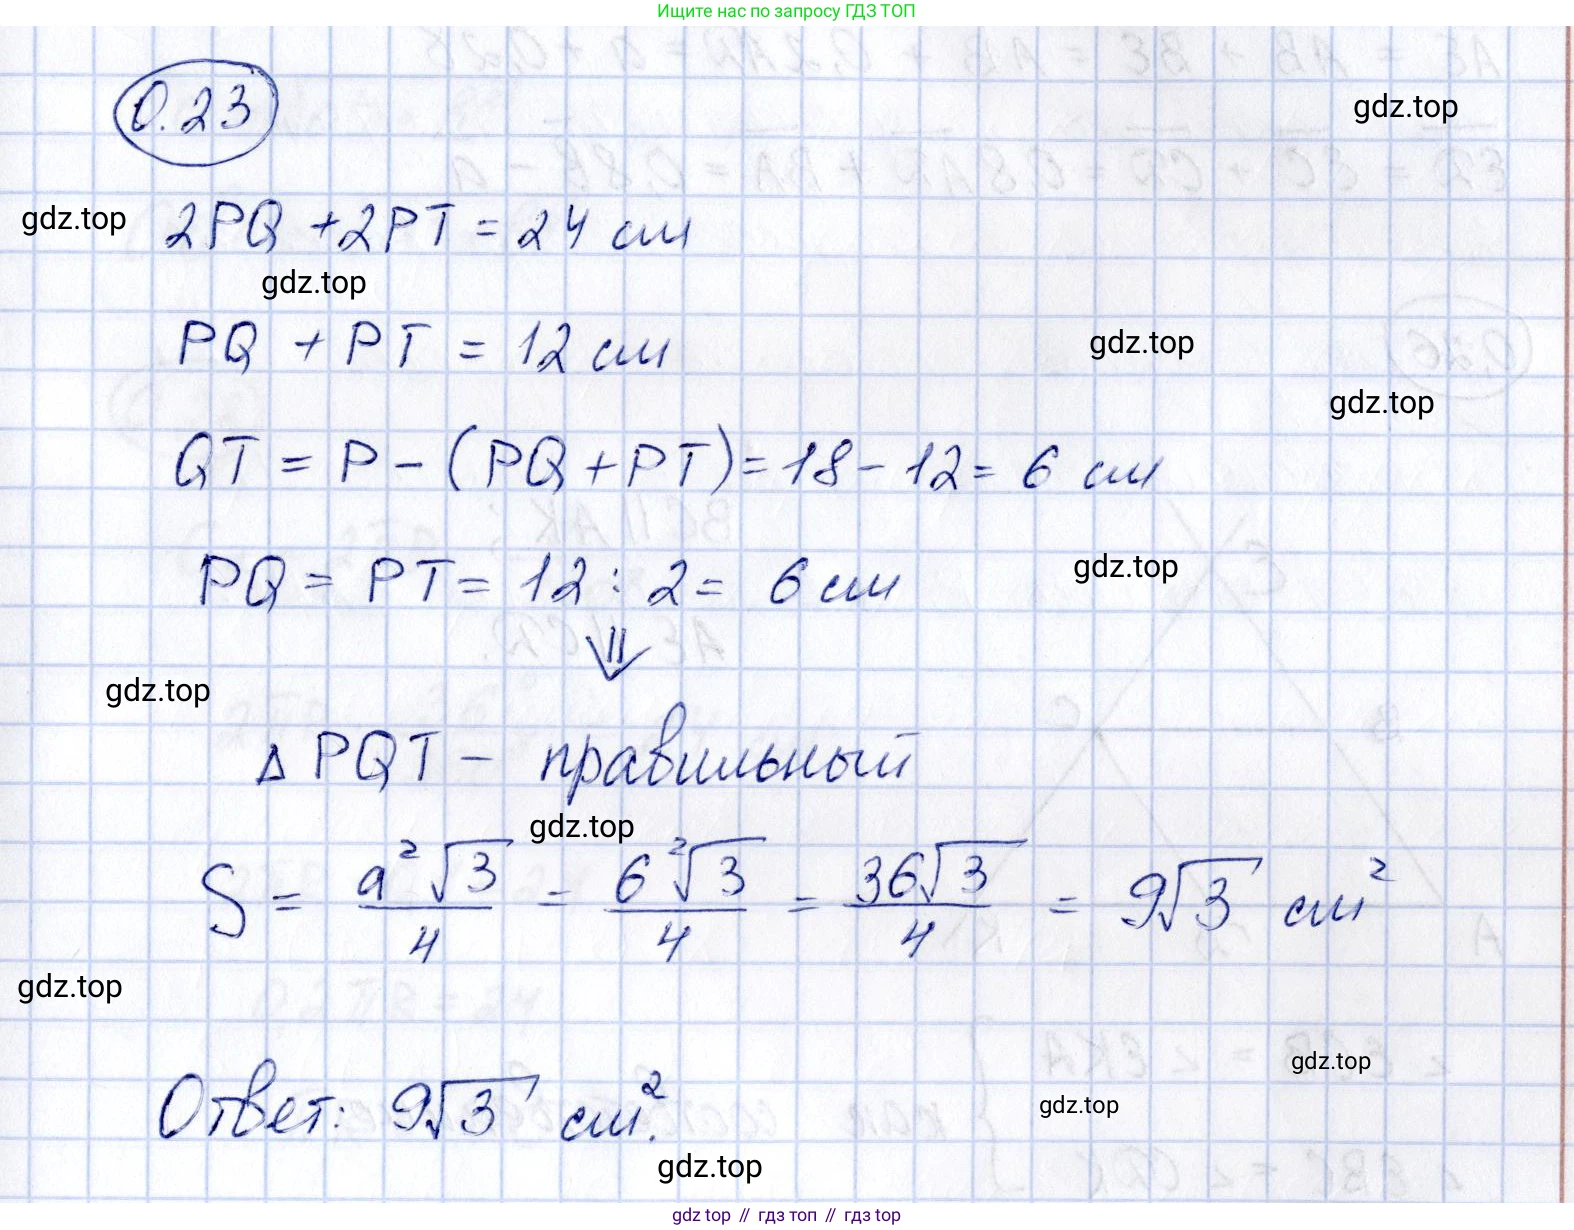 Ищите нас по запросу ГДЗ ТОП
0.23
gdz.top
gdz.top
2PQ + 2PT = 24 см
gdz.top
PQ + PT = 12 см
gdz.top
gdz.top
QT = P - (PQ + PT) = 18 - 12 = 6 см
PQ = PT = 12 : 2 = 6 см
gdz.top
⇓
gdz.top
Δ PQT - правильный
gdz.top
S = a²√3/4 = 6²√3/4 = 36√3/4 = 9√3 см²
gdz.top
gdz.top
Ответ: 9√3 см².
gdz.top
gdz.top
gdz top // гдз топ // гдз top